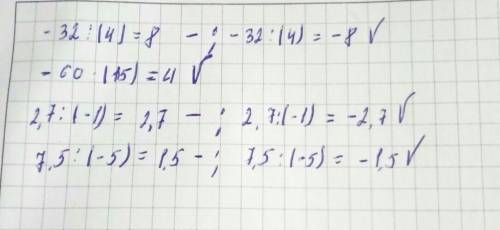 - 32 : (4) = 8 - ; - 32 : (4) = -8 √
- 60 : (15) = 4 √
2,7 : (-1) = 2,7 - ; 2,7 : (-1) = -2,7 √
7,5 : (-5) = 1,5 - ; 7,5 : (-5) = -1,5 √